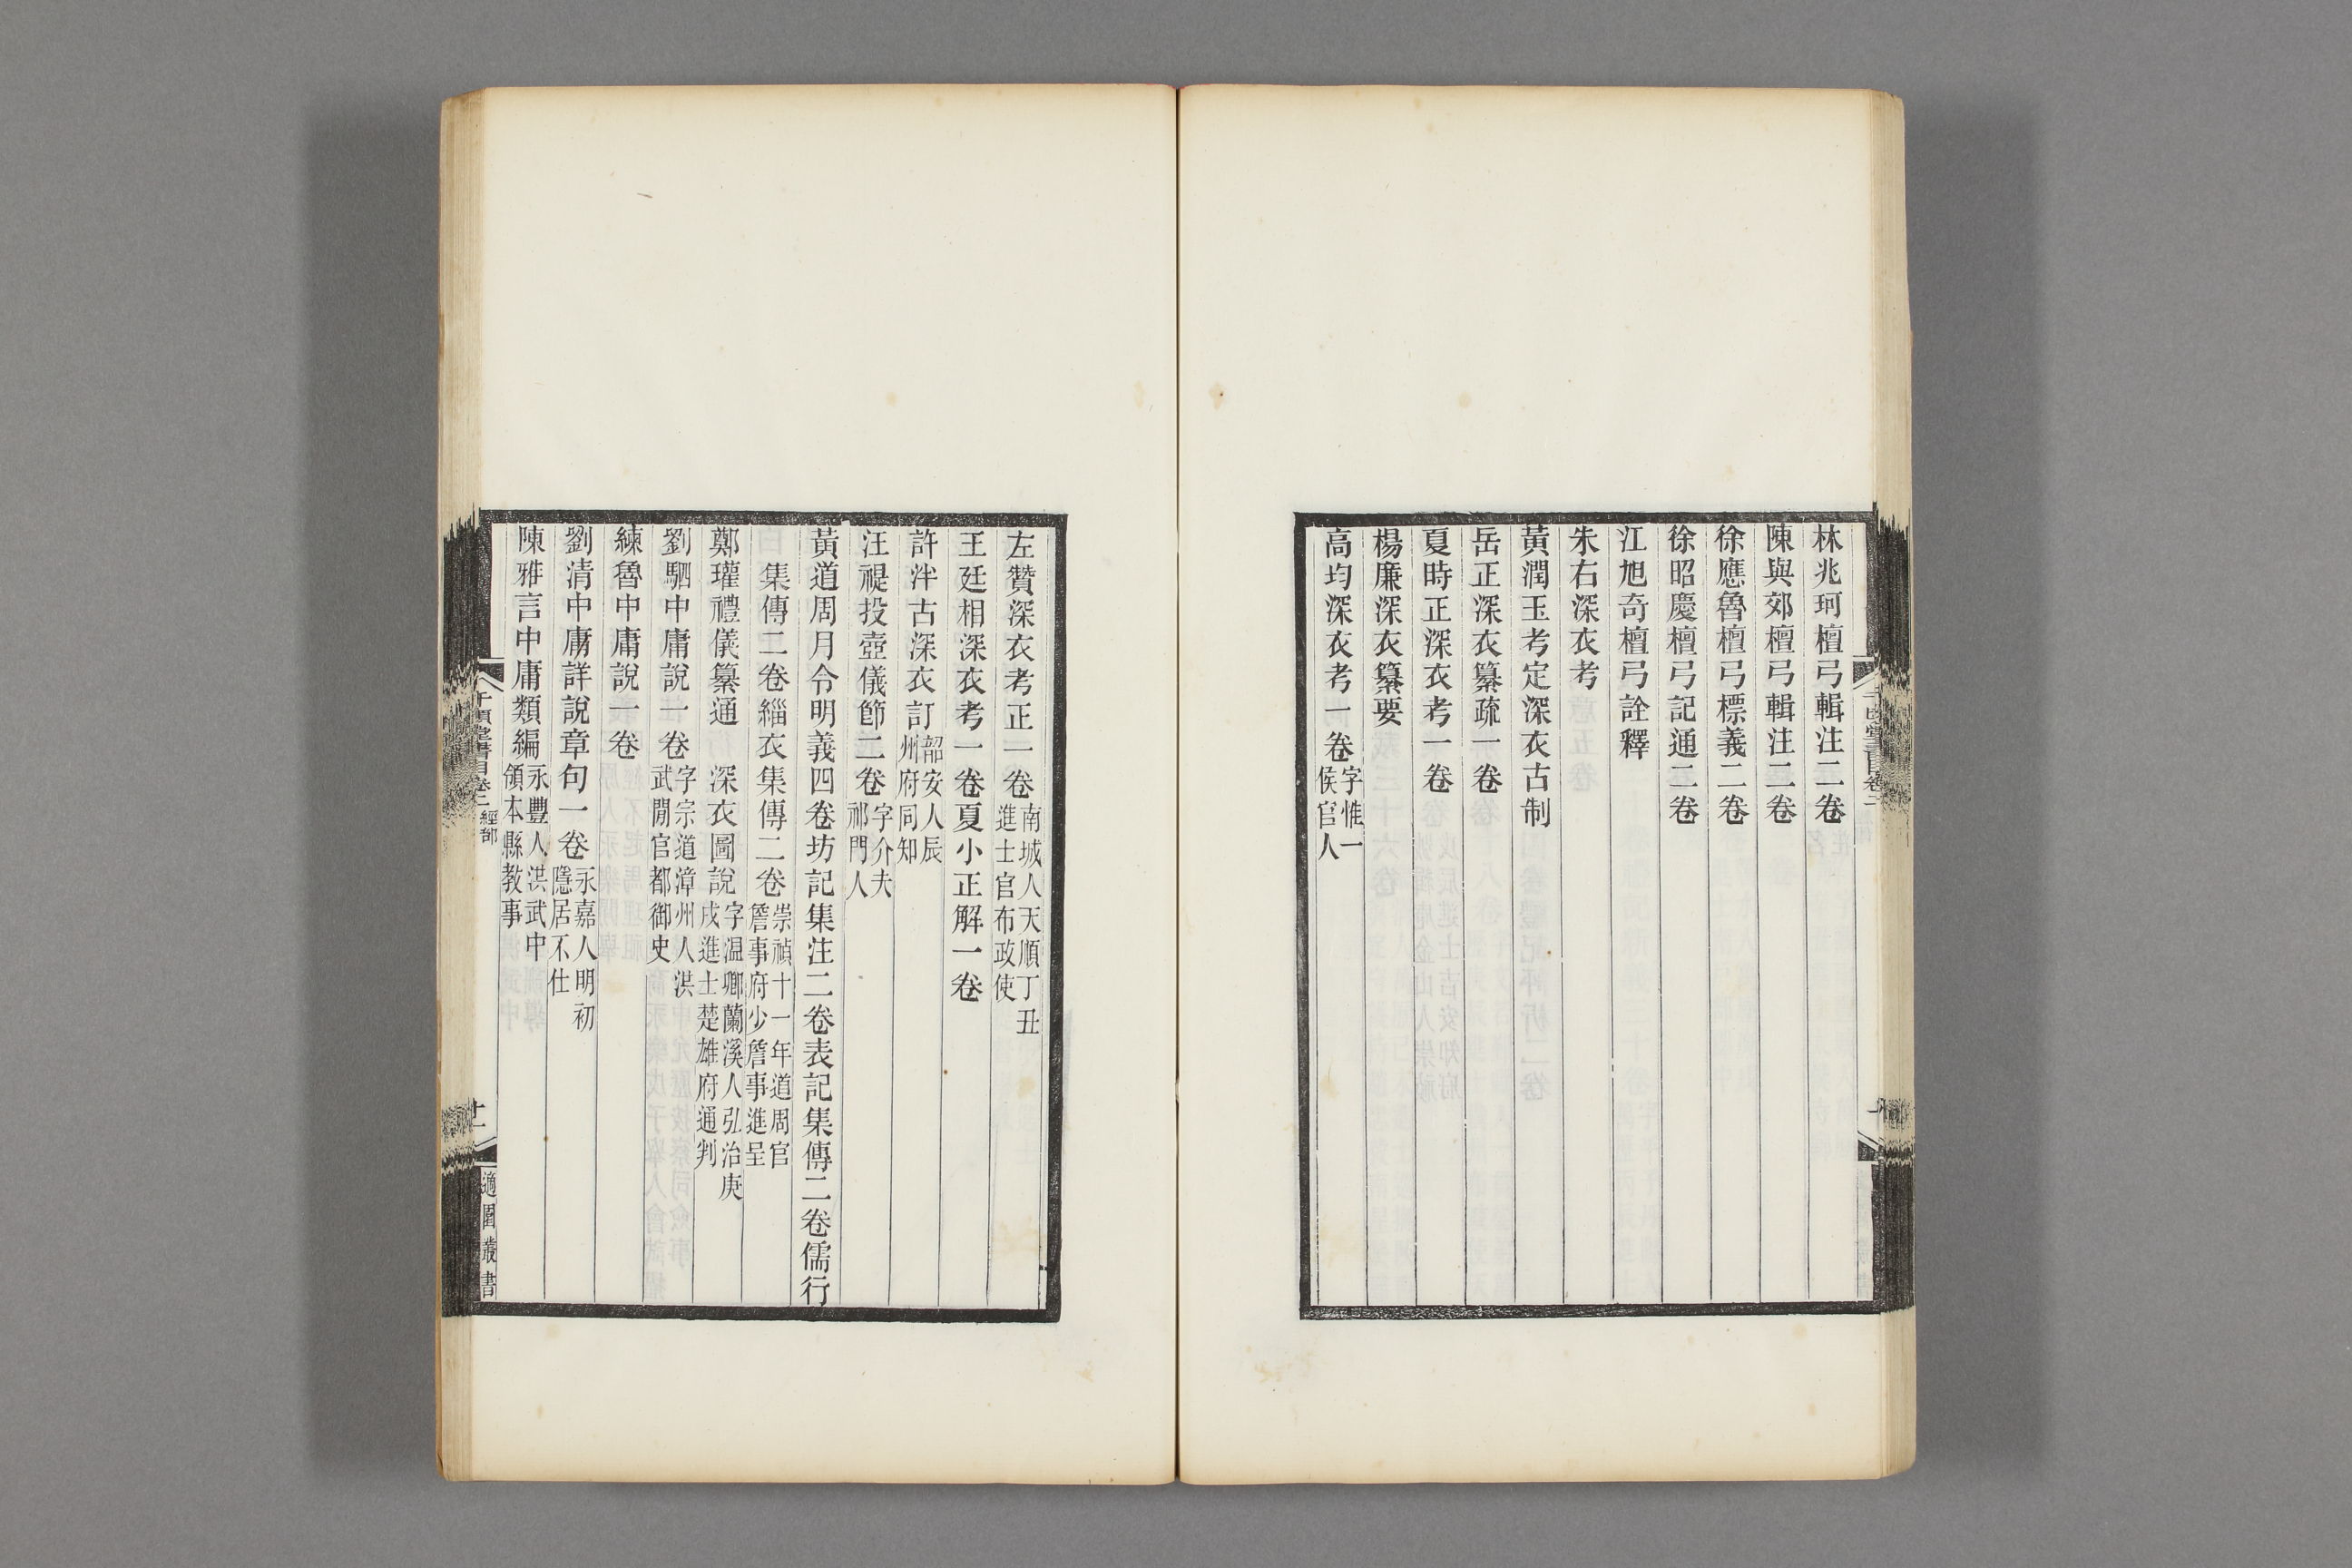 林兆珂檀弓輯注二卷
陳與郊檀弓輯注二卷
徐應魯檀弓標義二卷
徐昭慶檀弓記通二卷
江旭奇檀弓詮釋
朱右深衣考
黃潤玉考定深衣古制
岳正深衣纂疏一卷
夏時正深衣考一卷
楊廉深衣纂要
高均深衣考一卷字惟一侯官人
左贊深衣考正一卷南城人天順丁丑進士官布政使
王廷相深衣考一卷夏小正解一卷
許泮古深衣訂韶安人辰州府同知
汪禔投壺儀節二卷字介夫祁門人
黃道周月令明義四卷坊記集注二卷表記集傳二卷儒行
集傳二卷緇衣集傳二卷崇禎十一年道周官詹事府少詹事進呈
鄭瓘禮儀纂通 深衣圖說字溫卿蘭溪人弘治庚戌進士楚雄府通判
劉駟中庸說一卷字宗道漳州人洪武閒官都御史
練魯中庸說一卷
劉清中庸詳說章句一卷永嘉人明初隱居不仕
陳雅言中庸類編永豐人洪武中領本縣教事
千頃堂書目卷二 經部
十一
適園叢書